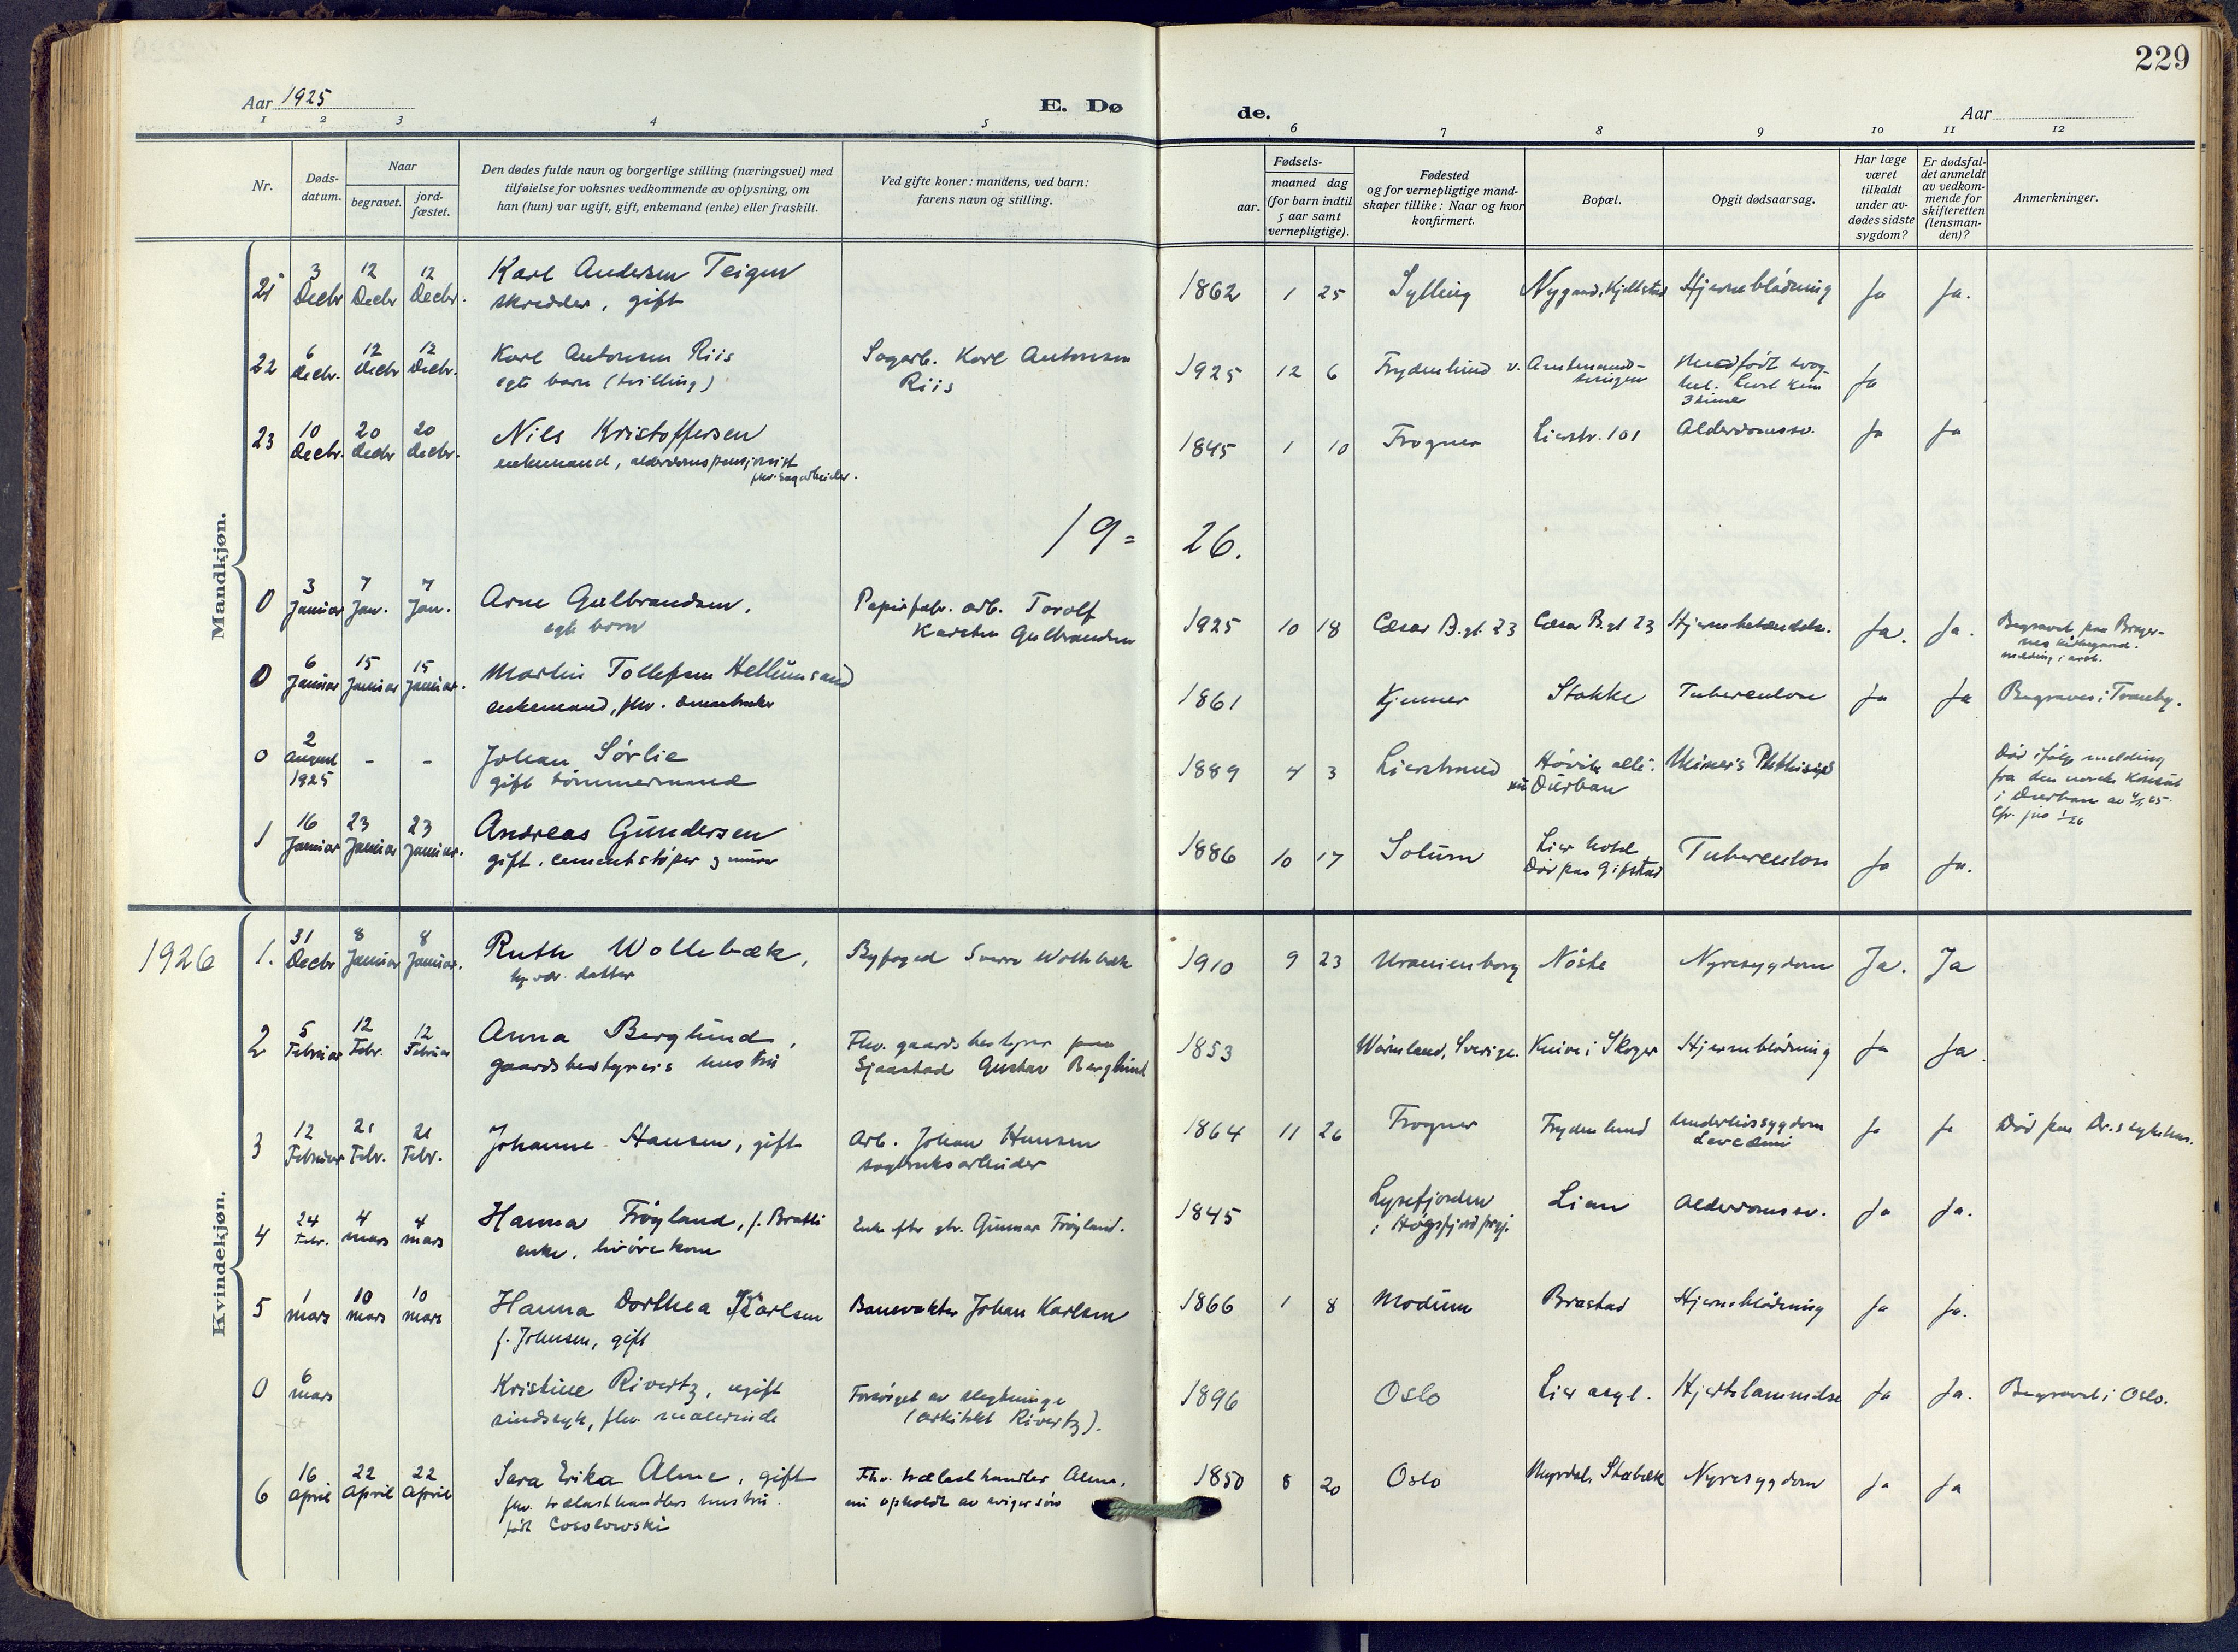 229
Aar 1925
E. Dø
de.
Aar
1 2 3 4 5 6 7 8 9 10 11 12
Nr.
Døds-
datum.
Naar
begravet.
jord-
fæstet.
Den dødes fulde navn og borgerlige stilling (næringsvei) med
tilføielse for voksnes vedkommende av oplysning, om
han (hun) var ugift, gift, enkemand (enke) eller fraskilt.
Ved gifte koner: mandens, ved barn:
farens navn og stilling.
Fødsels-
aar.
maaned dag
(for barn indtil
5 aar samt
vernepligtige).
Fødested
og for vernepligtige mand-
skaper tillike: Naar og hvor
konfirmert.
Bopæl.
Opgit dødsaarsag.
Har læge
været
tilkaldt
under av-
dødes sidste
sygdom?
Er dødsfal-
det anmeldt
av vedkom-
mende for
skifteretten
(lensman-
den)?
Anmerkninger.
Mandkjøn.
21 3 Decbr 12 Decbr 12 Decbr. Karl Andersen Teigen 1862 1 25 Sylling Nygaard, Kjellstad Hjerneblødning Ja Ja.
skredder, gift
22 6 Decbr. 12 Decbr 12 Decbr. Karl Antonsen Riis Sagarb. Karl Antonsen 1925 12 6 Frydenlund v. Amtmand-
egte barn (tvilling) Riis svingen Medfødt svag-
het. Levet kun
3 timer Ja
23 10 Decbr. 20 Decbr 20 Decbr. Nils Kristoffersen 1845 1 10 Frogner Lierstr. 101 Alderdomssv. Ja Ja
enkemand, alderdomspensjonist
fhv. sagarbeider.
19 = 26.
0 3 Januar 7 Jan. 7 Jan. Arne Gulbrandsen, Papirfabr. arb. Torolf 1925 10 18 Cæsar B. gt. 23 Cæsar B. gt 23 Hjernebetændelse. Ja. Ja. Begravet paa Brager-
egte barn Karsten Gulbrandsen nes kirkegaard.
melding i ark.
0 6 Januar 15 Januar 15 Januar. Martin Tollefsen Hellumsand 1861 Kjenner Stokke Tuberculose Ja Ja Begraves i Tranby.
enkemand, fhv. smaabruker
0 2 August 1925 - - Johan Sørlie 1889 4 3 Lierstrand Høvik allé. Miner's Phthisis Død ifølge melding
gift tømmermand nu Durban fra den norske konsul
i Durban av 4/11 25.
Cfr. jno 1/26
1 16 Januar 23 Januar 23 Januar. Andreas Gundersen 1886 10 17 Solum Lier hotel Tuberculose Ja Ja.
gift. cementstøper og murer Død paa Gifstad
Kvindekjøn.
1926 1. 31 Decbr 8 Januar 8 Januar. Ruth Wollebæk, Byfoged Sverre Wollebæk 1910 9 23 Uranienborg Nøste Nyresygdom Ja. Ja
hj.vær. datter
2 5 Februar 12 Febr. 12 Februar Anna Berglund, Fhv. gaardsbestyrer paa 1853 Wärmland, Sverige. Knive i Skoger Hjerneblødning Ja Ja.
gaardsbestyrers hustru Sjaastad Gustav Berglund
3 12 Februar 21 Febr. 21 Febr. Johanne Hansen, gift Arb. Johan Hansen 1864 11 26 Frogner Frydenlund Underlivssygdom Ja Ja Død paa Dr.s sykehus.
sagbruksarbeider Levcæmi
4 24 Febr. 4 mars 4 mars Hanna Frøyland, f. Bratli Enke efter gbr. Gunnar Frøyland. 1845 Lysefjorden Lian Alderdomssv. Ja Ja.
enke. livørekone i Høgsfjord prgj.
5 1 mars 10 mars 10 mars Hanna Dorthea Karlsen Banevokter Johan Karlsen 1866 1 8 Modum Brastad Hjerneblødning Ja Ja.
f. Johnsen, gift
0 6 mars Kristine Rivertz, ugift Forsørget av slegtninge 1896 Oslo Lier asyl. Hjertelammelse Ja Ja. Begravet i Oslo.
sindssyk, fhv. malerinde (arkitekt Rivertz).
6 16 April 22 April 22 April Sara Erika Alme, gift Fhv. trælasthandler Alme, 1850 8 20 Oslo Myrdal, Stabæk Nyresygdom Ja Ja
fhv. trælasthandlers hustru. nu opholdt av svigersøn
født Cosolowski